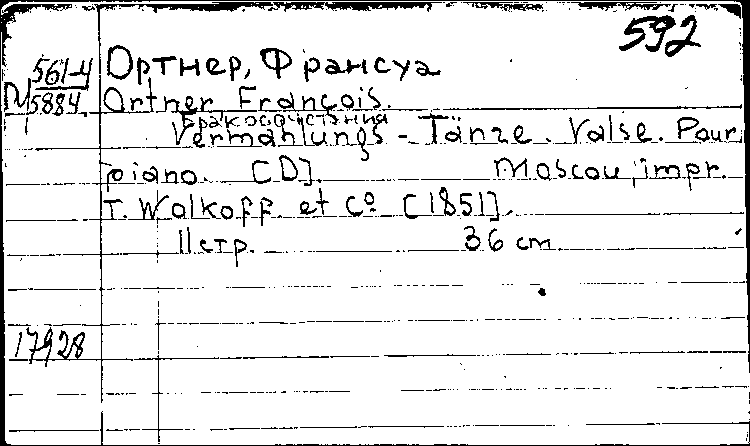 592
561-4 Ортнер, Франсуа
5884 Ortner, François.
Бракосочетания
Vermählungs - Tänze. Valse. Pour
piano. [D]. Moscou, impr.
T. Walkoff et Cº [1851].
11 стр. 36 cm
17928